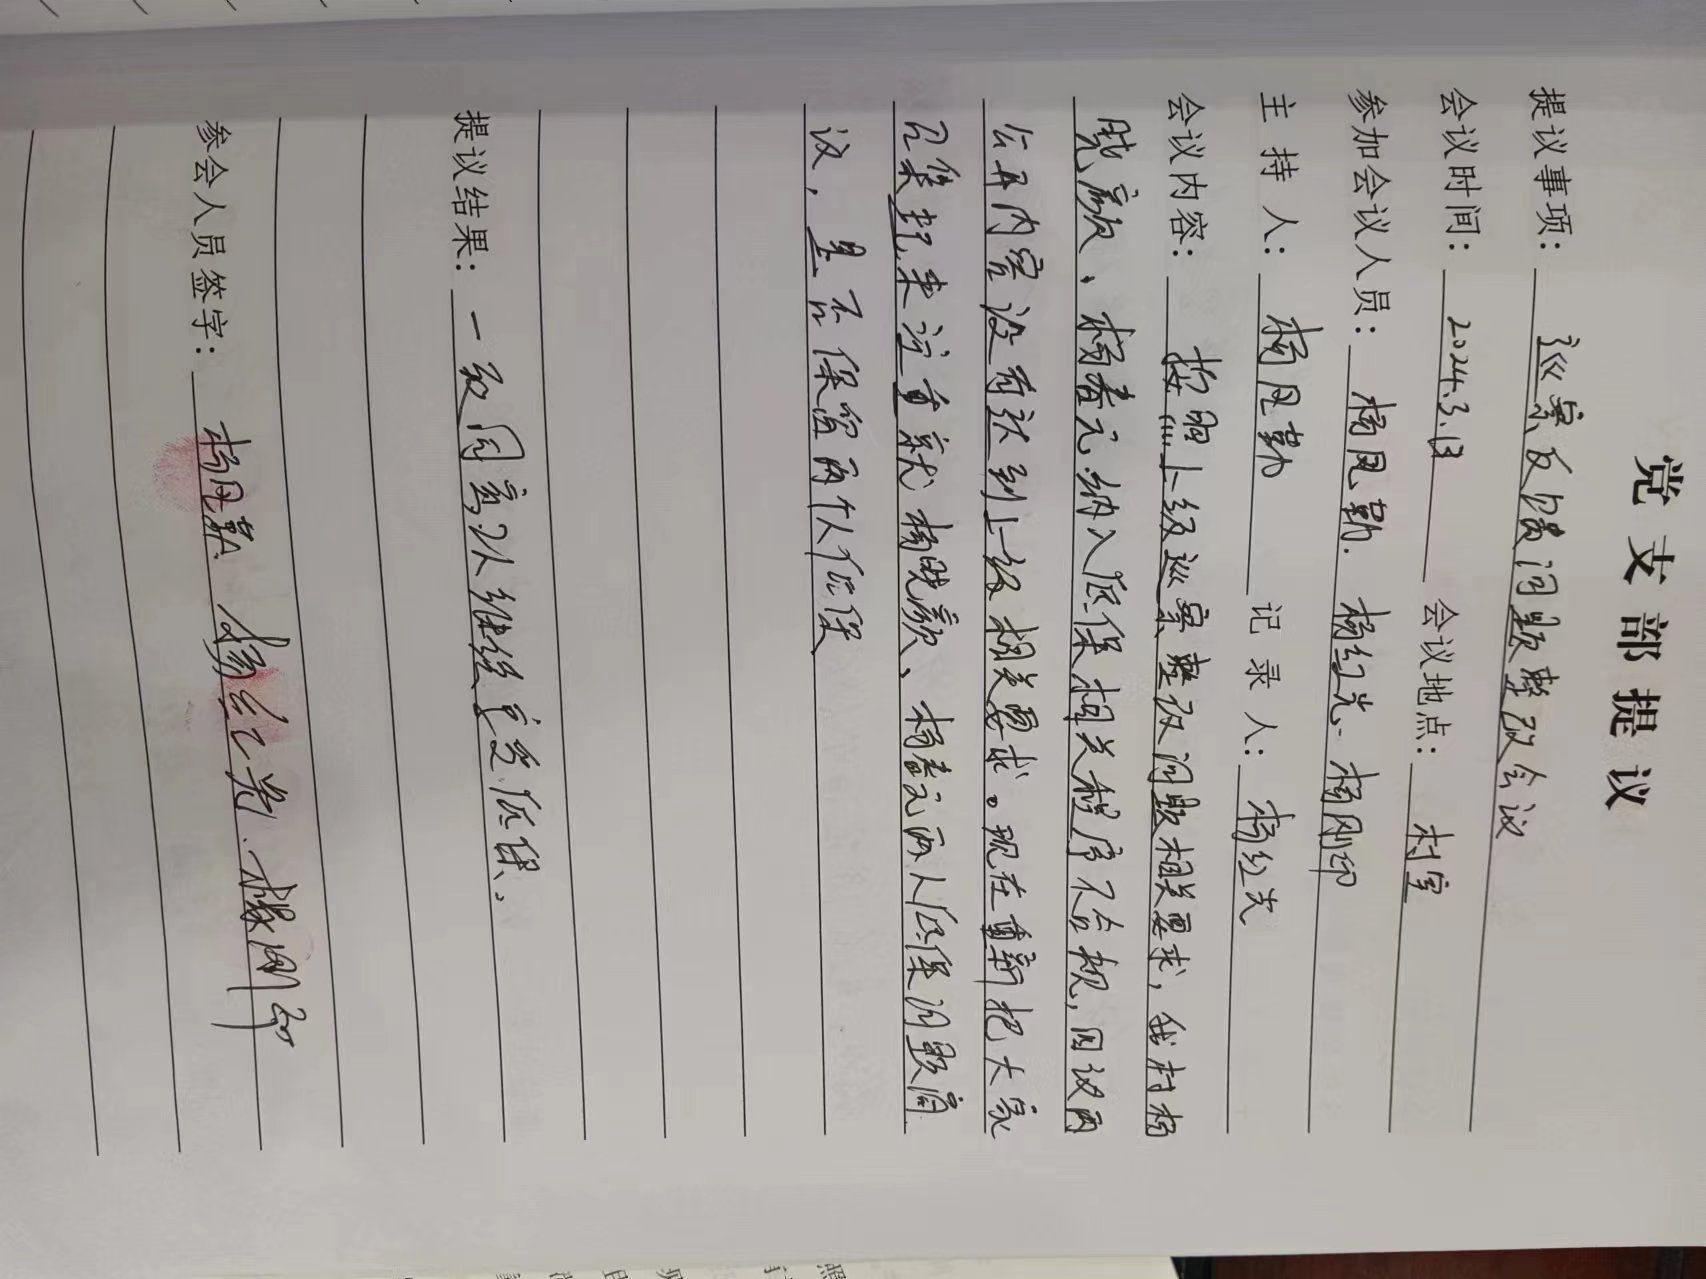 党支部提议
提议事项：巡察反馈问题整改会议
会议时间：2024.3.13 会议地点：村室
参加会议人员：杨凤勤．杨红光．杨刚印
主持人：杨凤勤 记录人：杨红光
会议内容：按照上级巡察整改问题相关要求，我村杨
晓颜、杨春元纳入低保相关程序不合规，因议两
公开内容没有达到上级相关要求。现在重新把大家
召集起来注重就杨晓颜、杨春元两人低保问题商
议，是否保留两个人低保
提议结果：一致同意以继续享受低保．
参会人员签字：杨凤勤 杨红光．杨刚印